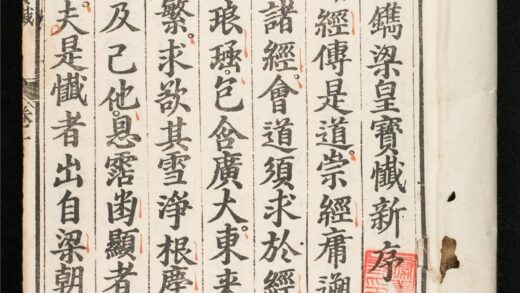 鐫梁皇寶懺新序
經傳是道崇經庸
諸經會道須求於經
琅璭包含廣大東来
繁求欲其雪淨根塵
及己他悉露幽顯者
夫是懺者出自梁朝